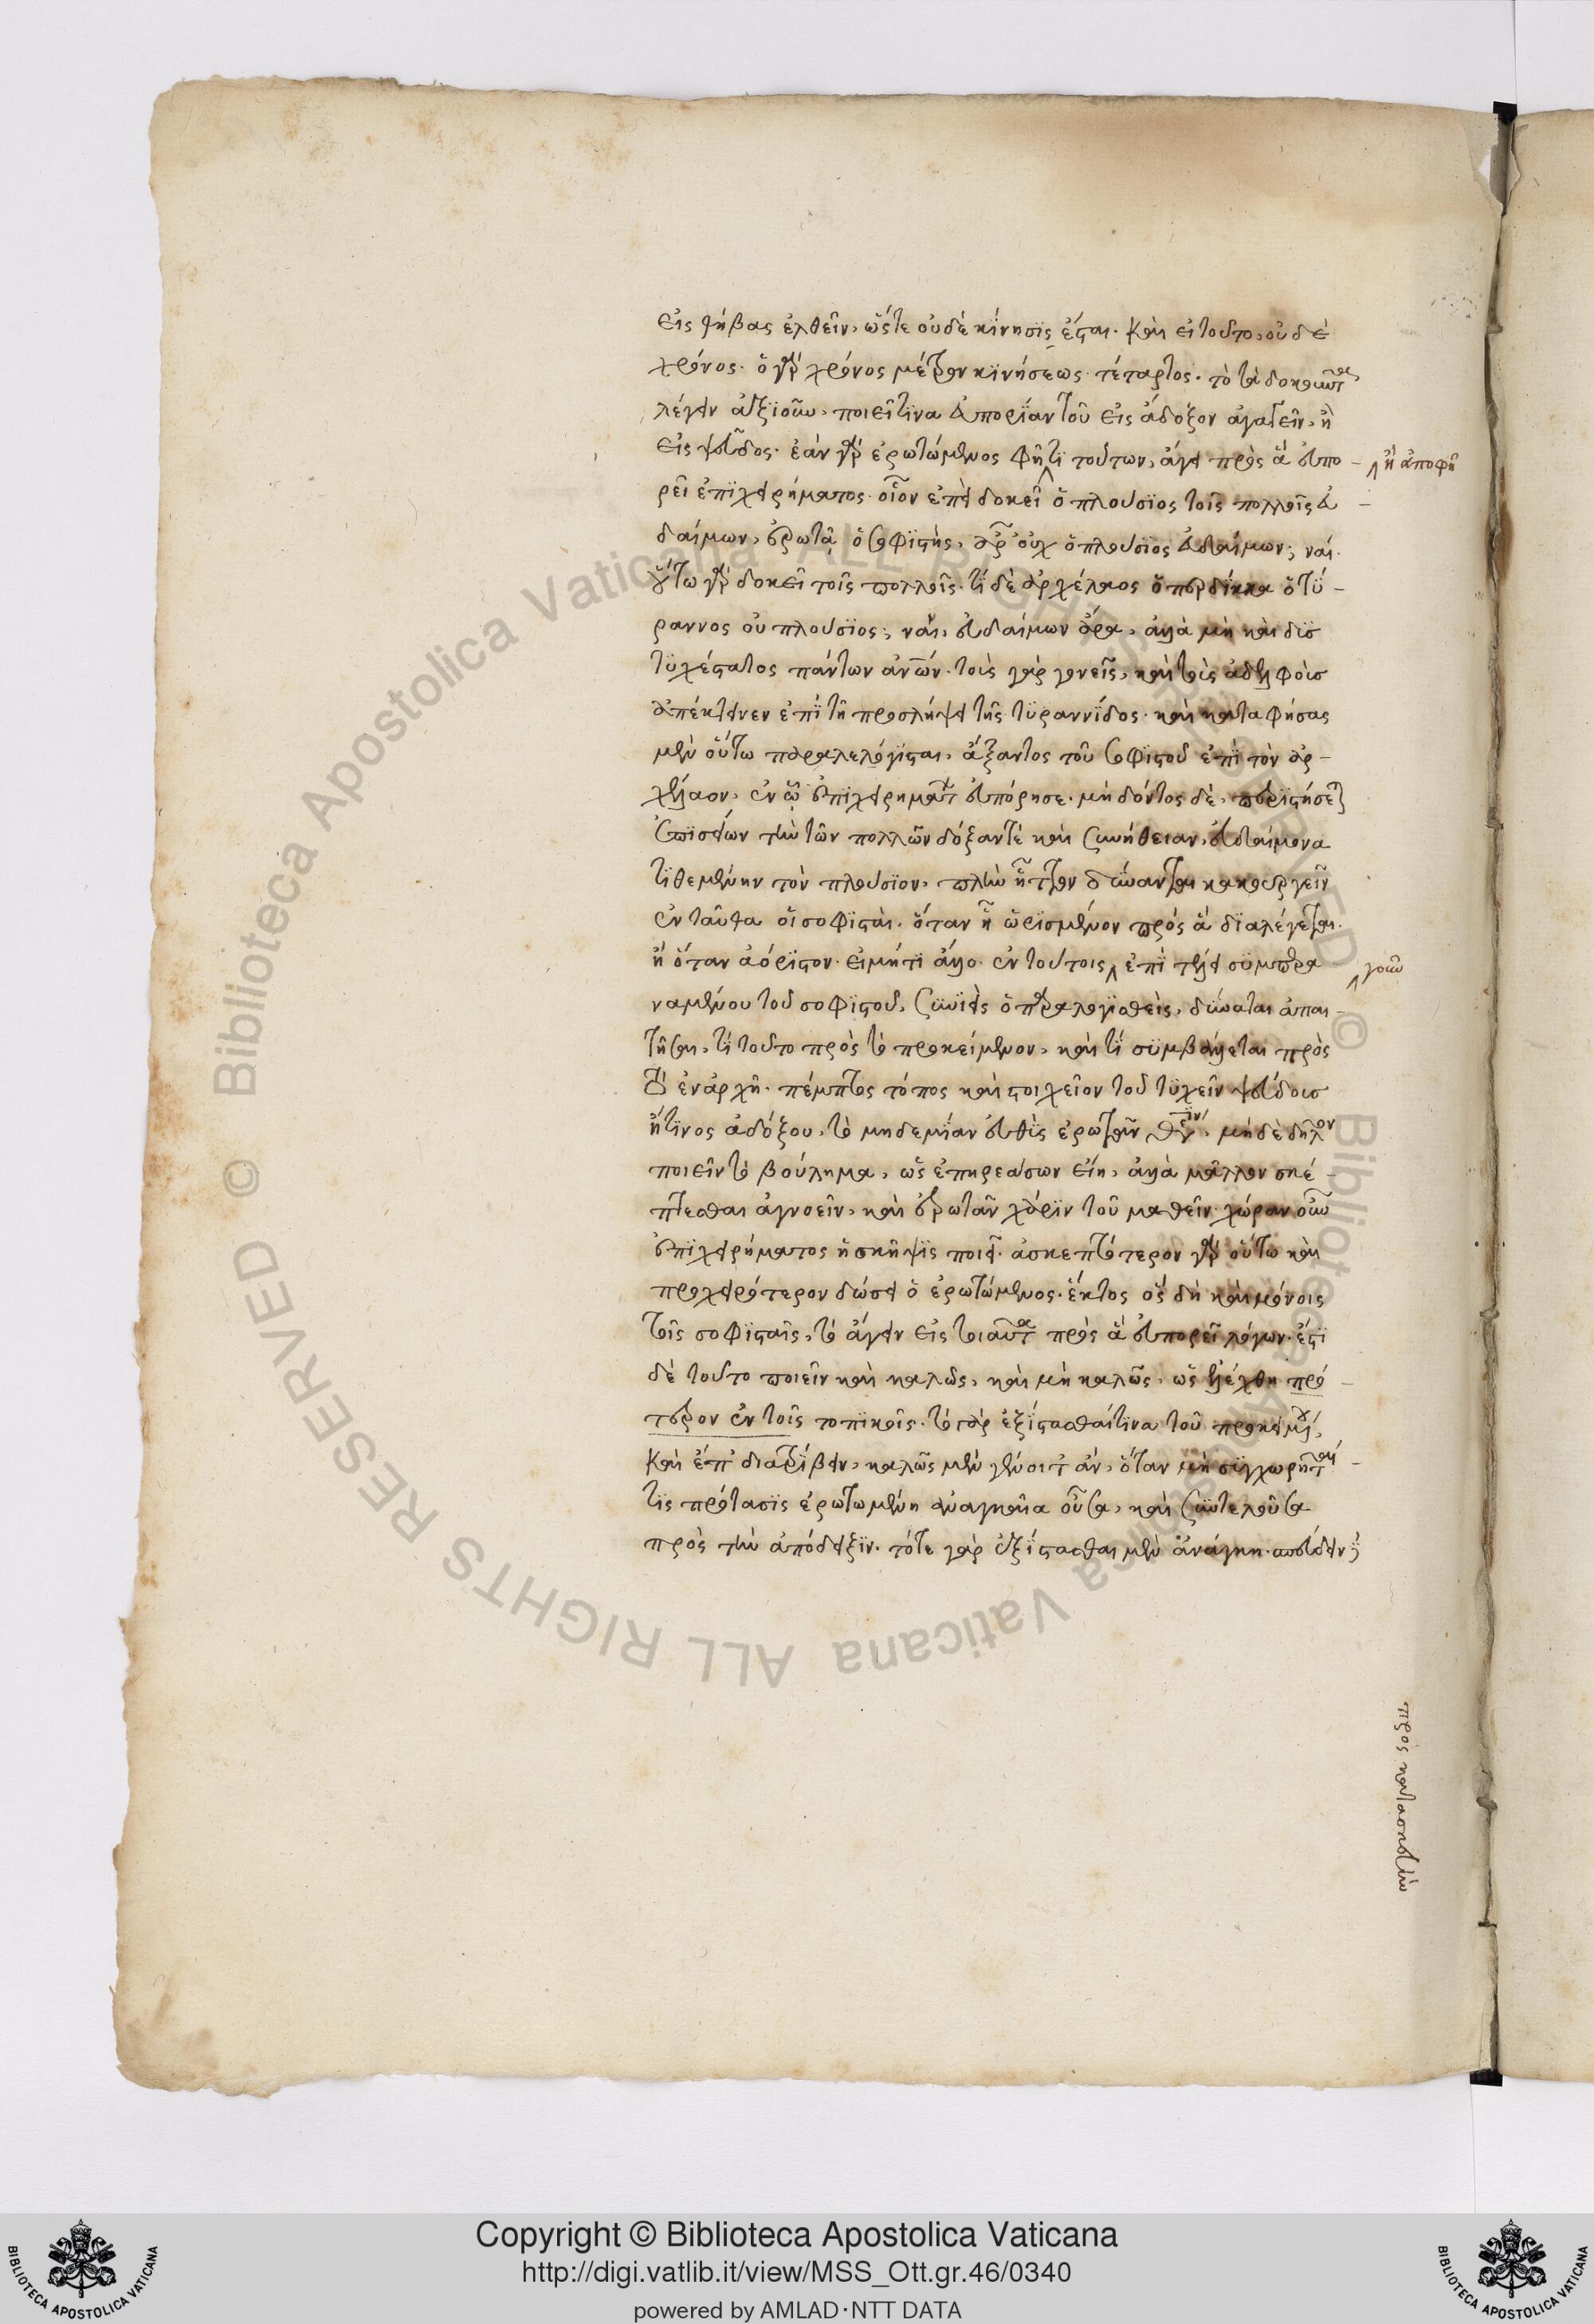 εἰς θήβας ἐλθεῖν, ὥστε οὐδὲ κίνησϊς ἔσται. καὶ εἰ τοῦτο, οὐδὲ
χρόνος. ὁ γὰρ χρόνος μέτρον κϊνήσεως. τέταρτος. τὸ τὰ δοκοῦντα
λέγειν ἀξϊοῦν, ποιεῖ τϊνα εὐπορΐαν τοῦ εἰς ἄδοξον ἀγαγεῖν, ἢ
εἰς ψεῦδος. ἐὰν γὰρ ἐρωτώμενος φῆ τϊ τούτων, ἄγει πρὸς ἃ εὐπο-
ἢ ἀποφῆ
ρεῖ ἐπϊχειρήματος. οἷον ἐπεὶ δοκεῖ ὁ πλούσϊος τοῖς πολλοῖς εὐ-
δαίμων, ἐρωτᾶ ὁ σοφϊστὴς, ἆρ' οὐχ ὁ πλούσϊος εὐδαίμων; ναί.
οὕτω γὰρ δοκεῖ τοῖς πολλοῖς. τΐ δὲ ἀρχέλαος ὁ περδίκκα ὁ τύ-
ραννος οὐ πλούσϊος; ναὶ, εὐδαίμων ἄρα, ἀλλὰ μὴν καὶ δϋσ
τϋχέστατος πάντων ἀνῶν. τοὺς γὰρ γονεῖς, καὶ τοὺς ἀδελφοὺς
ἀπέκτεινεν ἐπΐ τῆ προσλήψει τῆς τϋραννΐδος. καὶ καταφήσας
μὲν οὕτω παραλελόγϊσται, ἄξαντος τοῦ σοφϊστοῦ ἐπϊ τὸν ἀρ-
χέλαον, ἐν ᾧ ἐπϊχειρημάτ εὐπόρησε. μὴ δόντος δὲ,
ἐπϊσείων τὴν τῶν πολλῶν δόξαν τὲ καὶ συνήθειαν, εὐδαίμονα
τϊθεμένην τὸν πλούσϊον, πλὴν ἧττον δύνανται κακουργεῖν
ἐνταῦθα οἱ σοφϊσταὶ. ὅταν ἦ ὡρϊσμένον πρὸς ἃ διαλέγεται.
ἢ ὅταν ἀόρϊστον. εἰ μή τϊ ἄλλο. ἐν τούτοις ἐπΐ τέλει σϋμπερα
γοῦν
ναμένου τοῦ σοφϊστοῦ, σϋνϊεὶς ὁ παραλογϊσθεὶς, δύναται ἀπαι-
τῆσαι, τΐ τοῦτο πρὸς τὸ προκείμενον, καὶ τΐ σϋμβάλλεται πρὸς
τὸ ἐν ἀρχῆ. πέμπτος τόπος καὶ στοιχεῖον τοῦ τϋχεῖν ψεύδους
ἤ τϊνος ἀδόξου, τὸ μηδεμΐαν εὐθὺς ἐρωτᾶν θέσϊν, μὴ δὲ δῆλον
ποιεῖν τὸ βούλημα, ὡς ἐπηρεάσων εἴη, ἀλλὰ μᾶλλον σκέ-
πτεσθαι ἀγνοεῖν, καὶ ἐρωτᾶν χάρϊν τοῦ μαθεῖν. χώραν οὖν
ἐπϊχειρήματος ἡ σκῆψϊς ποιεῖ. ἀσκεπτότερον γὰρ οὕτω καὶ
προχειρότερον δώσει ὁ ἐρωτώμενος. ἕκτος ὃς δὴ καὶ μόνοις
τοῖς σοφϊσταῖς, τὸ ἄγειν εἰς τοιαῦτα πρὸς ἃ εὐπορεῖ λόγων. ἔστϊ
δὲ τοῦτο ποιεῖν καὶ καλῶς, καὶ μὴ καλῶς, ὡς ἐλέχθη πρό-
τερον ἐν τοῖς τοπϊκοῖς. τὸ γὰρ ἐξΐστασθαί τϊνα τοῦ προκειμένου,
καὶ ἔτι διατρΐβειν, καλῶς μὲν γένοιτ' ἂν, ὅταν μὴ σϋγχωρῆται
τϊς πρότασϊς ἐρωτωμένη ἀναγκαῖα οὖσα, καὶ σϋντελοῦσα
πρὸς τὴν ἀπόδειξϊν. τότε γὰρ ἐξΐστασθαι μὲν ἀνάγκη.
πρὸς κατασκευὴν
Copyright © Biblioteca Apostolica Vaticana
http://digi.vatlib.it/view/MSS_Ott.gr.46/0340
powered by AMLAD·NTT DATA
BIBLIOTECA APOSTOLICA VATICANA
BIBLIOTECA APOSTOLICA VATICANA
© Biblioteca Apostolica Vaticana ALL RIGHTS RESERVED © Biblioteca Apostolica Vaticana ALL RIGHTS RESERVED